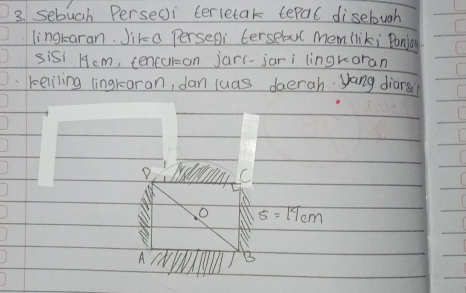 3. Sebuah Persegi terletak tepat disebuah
lingkaran. Jika Persegi tersebut memiliki Panjan
sisi 14cm, tentukan jari-jari lingkaran
keliling lingkaran, dan luas daerah yang diarsir
D C
O S = 14cm
A B